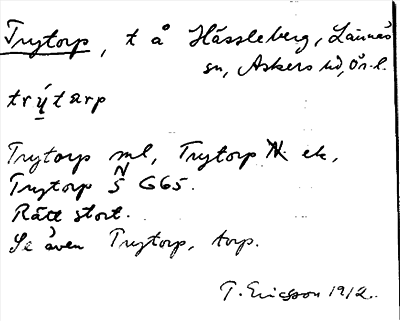 Trytorp, t å Hässleberg, Lännäs
sn, Askers hd, Ör. l.
trýtarp
Trytorp ml, Trytorp N ek,
Trytorp S G65.
N
Rätt stort.
Se även Trytorp, torp.
T. Ericsson 1912.